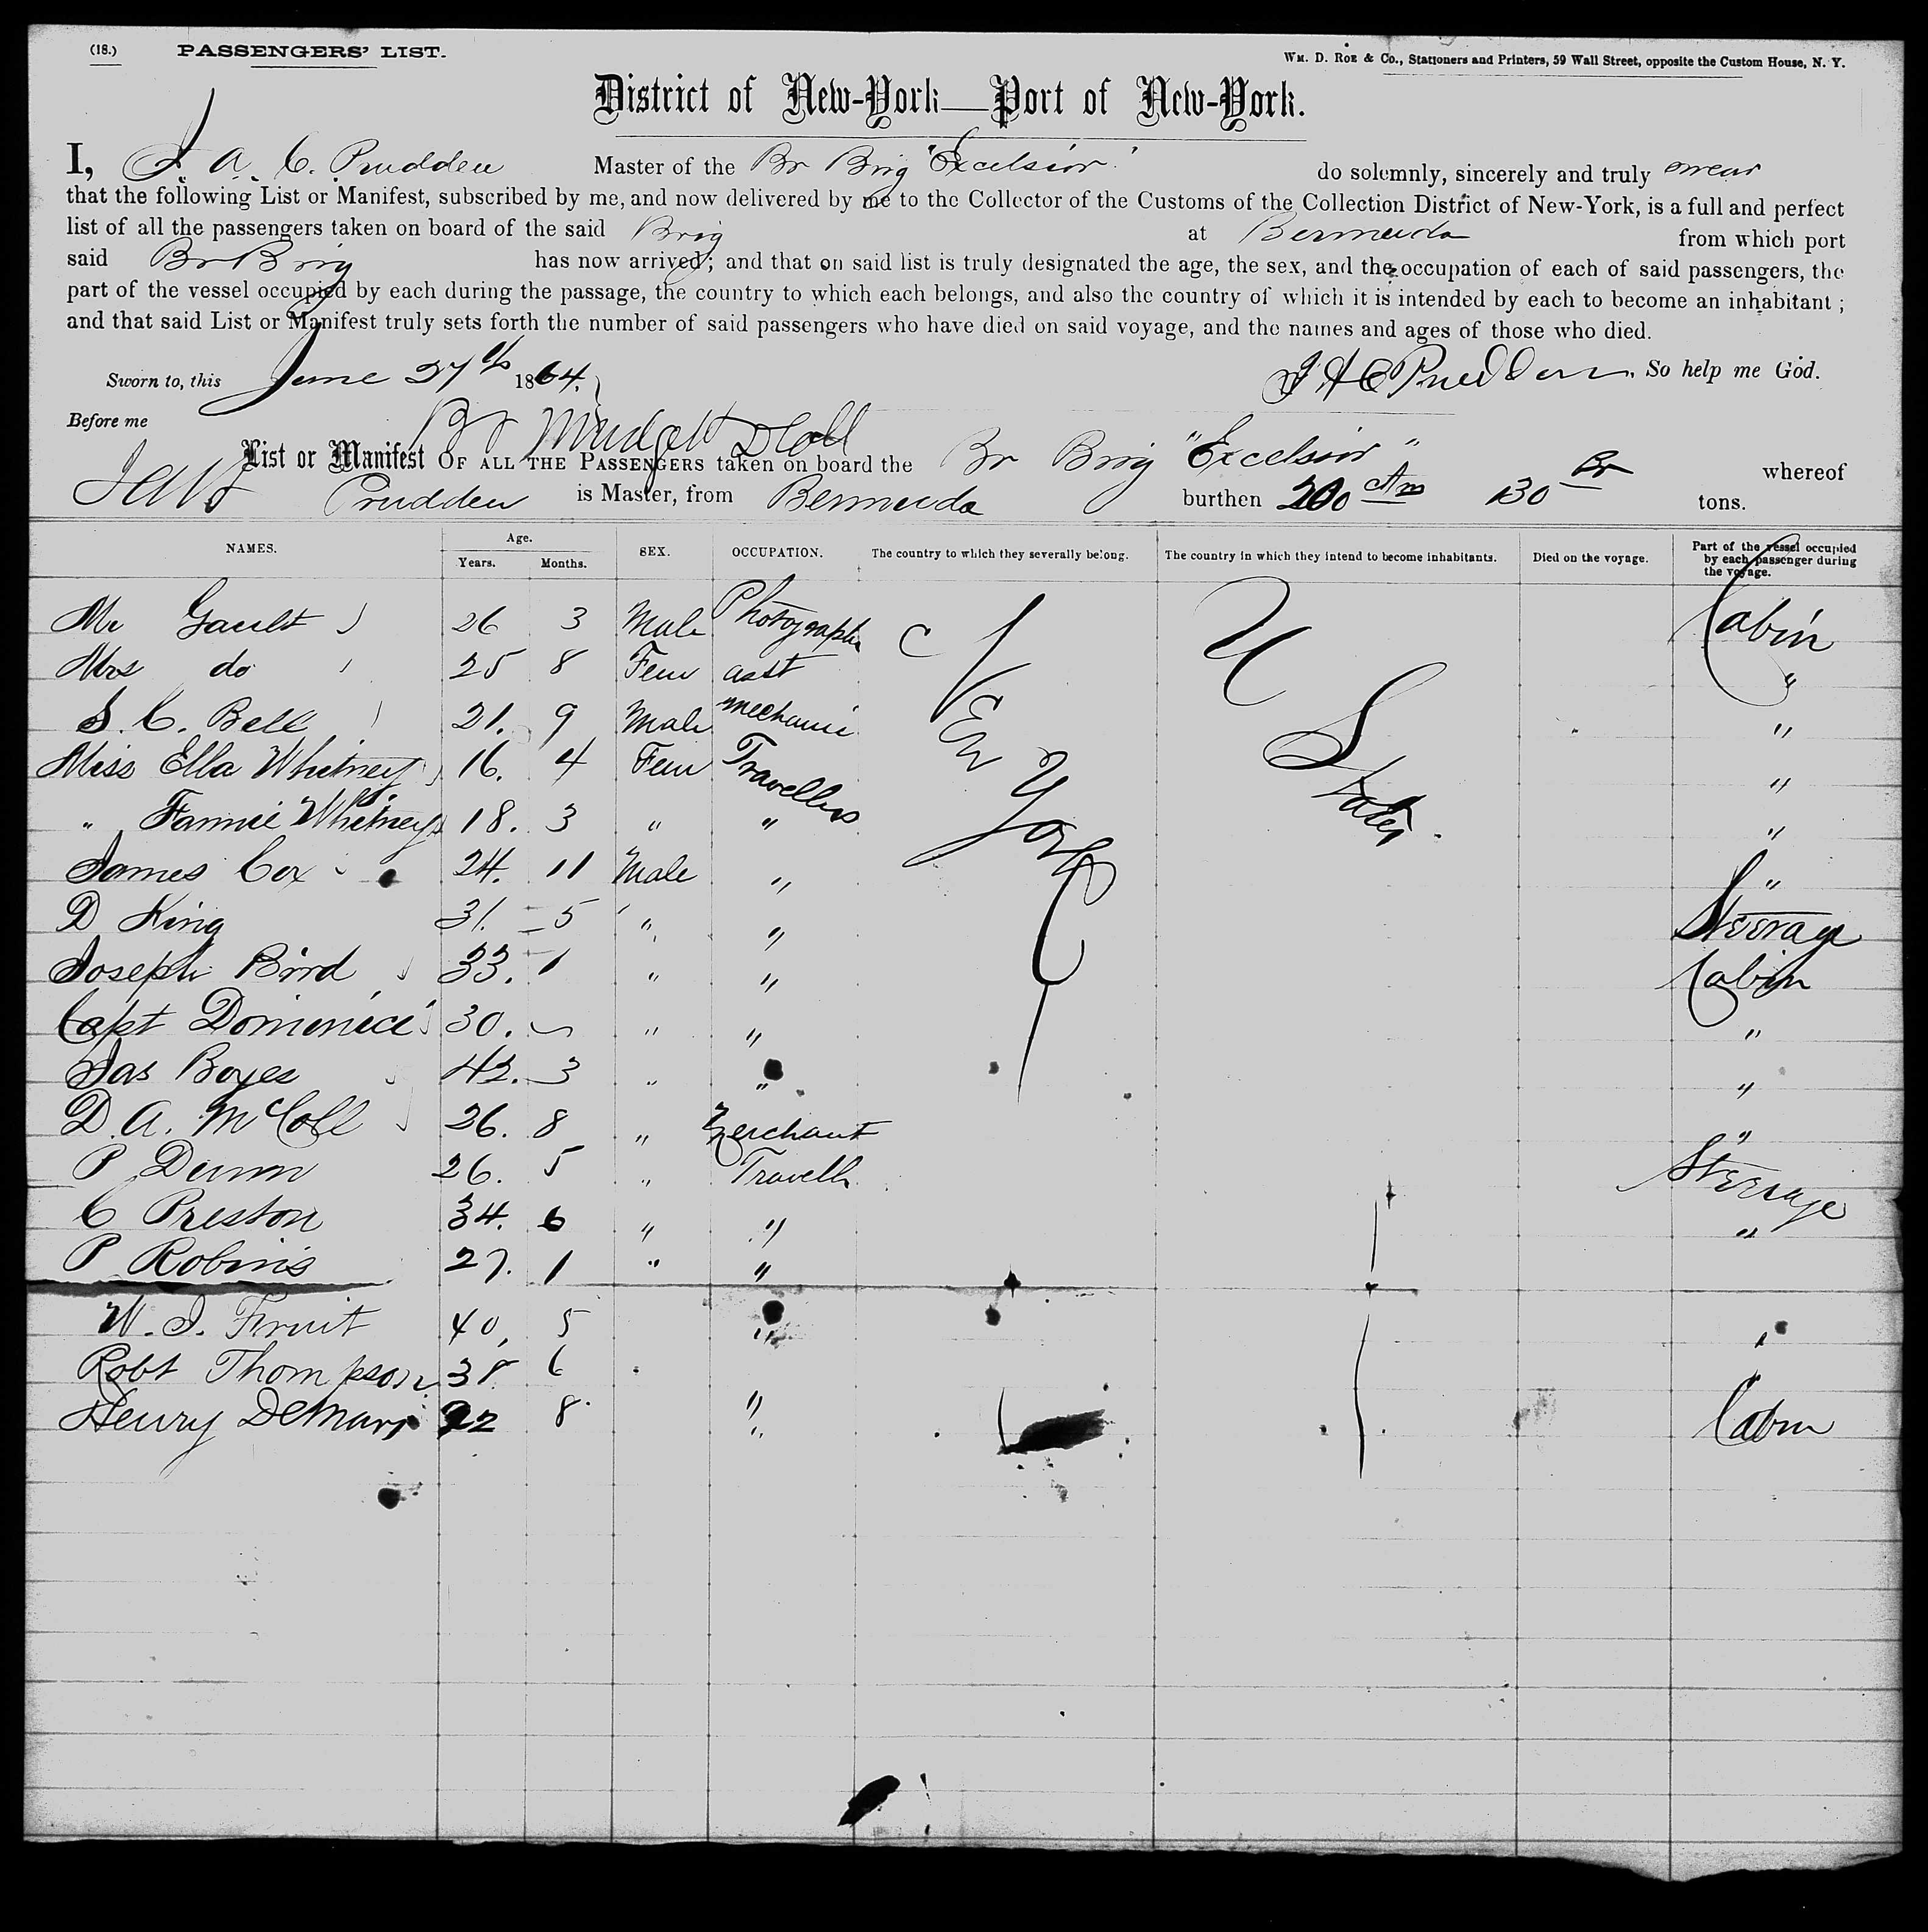 (18.) PASSENGERS' LIST. Wm. D. Roe & Co., Stationers and Printers, 59 Wall Street, opposite the Custom House, N. Y.
District of New-York—Port of New-York.
I, J. A. C. Prudden Master of the Br Brig "Excelsior" do solemnly, sincerely and truly swear
that the following List or Manifest, subscribed by me, and now delivered by me to the Collector of the Customs of the Collection District of New-York, is a full and perfect
list of all the passengers taken on board of the said Brig at Bermuda from which port
said Br Brig has now arrived; and that on said list is truly designated the age, the sex, and the occupation of each of said passengers, the
part of the vessel occupied by each during the passage, the country to which each belongs, and also the country of which it is intended by each to become an inhabitant;
and that said List or Manifest truly sets forth the number of said passengers who have died on said voyage, and the names and ages of those who died.
Sworn to, this June 27th 1864. J A C Prudden. So help me God.
Before me
List or Manifest OF ALL THE PASSENGERS taken on board the Br Brig "Excelsior" whereof
Prudden is Master, from Bermuda burthen 200 Am 130 Br tons.
NAMES. Age. Years. Months. SEX. OCCUPATION. The country to which they severally belong. The country in which they intend to become inhabitants. Died on the voyage. Part of the vessel occupied by each passenger during the voyage.
Mr Gault 26 3 Male Photographr U Cabin
Mrs do 25 8 Fem "
S. C. Bell 21. 9 Male mechanic New York States "
Miss Ella Whitney 16. 4 Fem Travellers "
" Fannie Whitney 18. 3 " " "
James Cox 24. 11 Male " "
D King 31. 5 " " Steerage
Joseph Bird 33. 1 " " Cabin
Capt Domenice 30. " " "
Jas Boyes 42. 3 " " "
D. A. McColl 26. 8 " Merchant "
P Dunn 26. 5 " Travellr Steerage
C Preston 34. 6 " " "
P Robins 27. 1 " "
W. J. Fruit 40, 5 " "
Robt Thompson 38 6 "
Henry 22 8 " Cabin